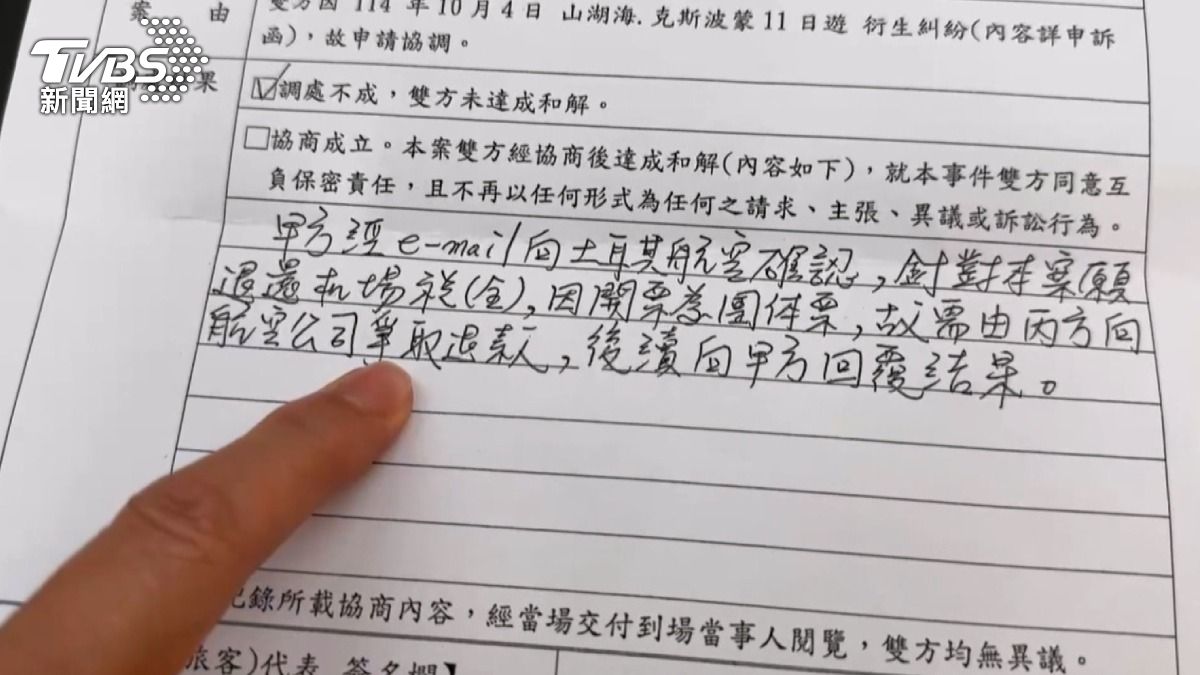 案由
雙方因 114 年 10 月 4 日 山湖海.克斯波蒙 11 日遊 衍生糾紛(內容詳申訴
函)，故申請協調。
TVBS
新聞網
果
☑調處不成，雙方未達成和解。
□協商成立。本案雙方經協商後達成和解(內容如下)，就本事件雙方同意互
負保密責任，且不再以任何形式為任何之請求、主張、異議或訴訟行為。
甲方經e-mail向土耳其航空確認，針對本案願
退還机場稅(全)，因開票為團体票，故需由丙方向
航空公司爭取退款，後續向甲方回覆結果。
記錄所載協商內容，經當場交付到場當事人閱覽，雙方均無異議。
旅客)代表 簽名欄】